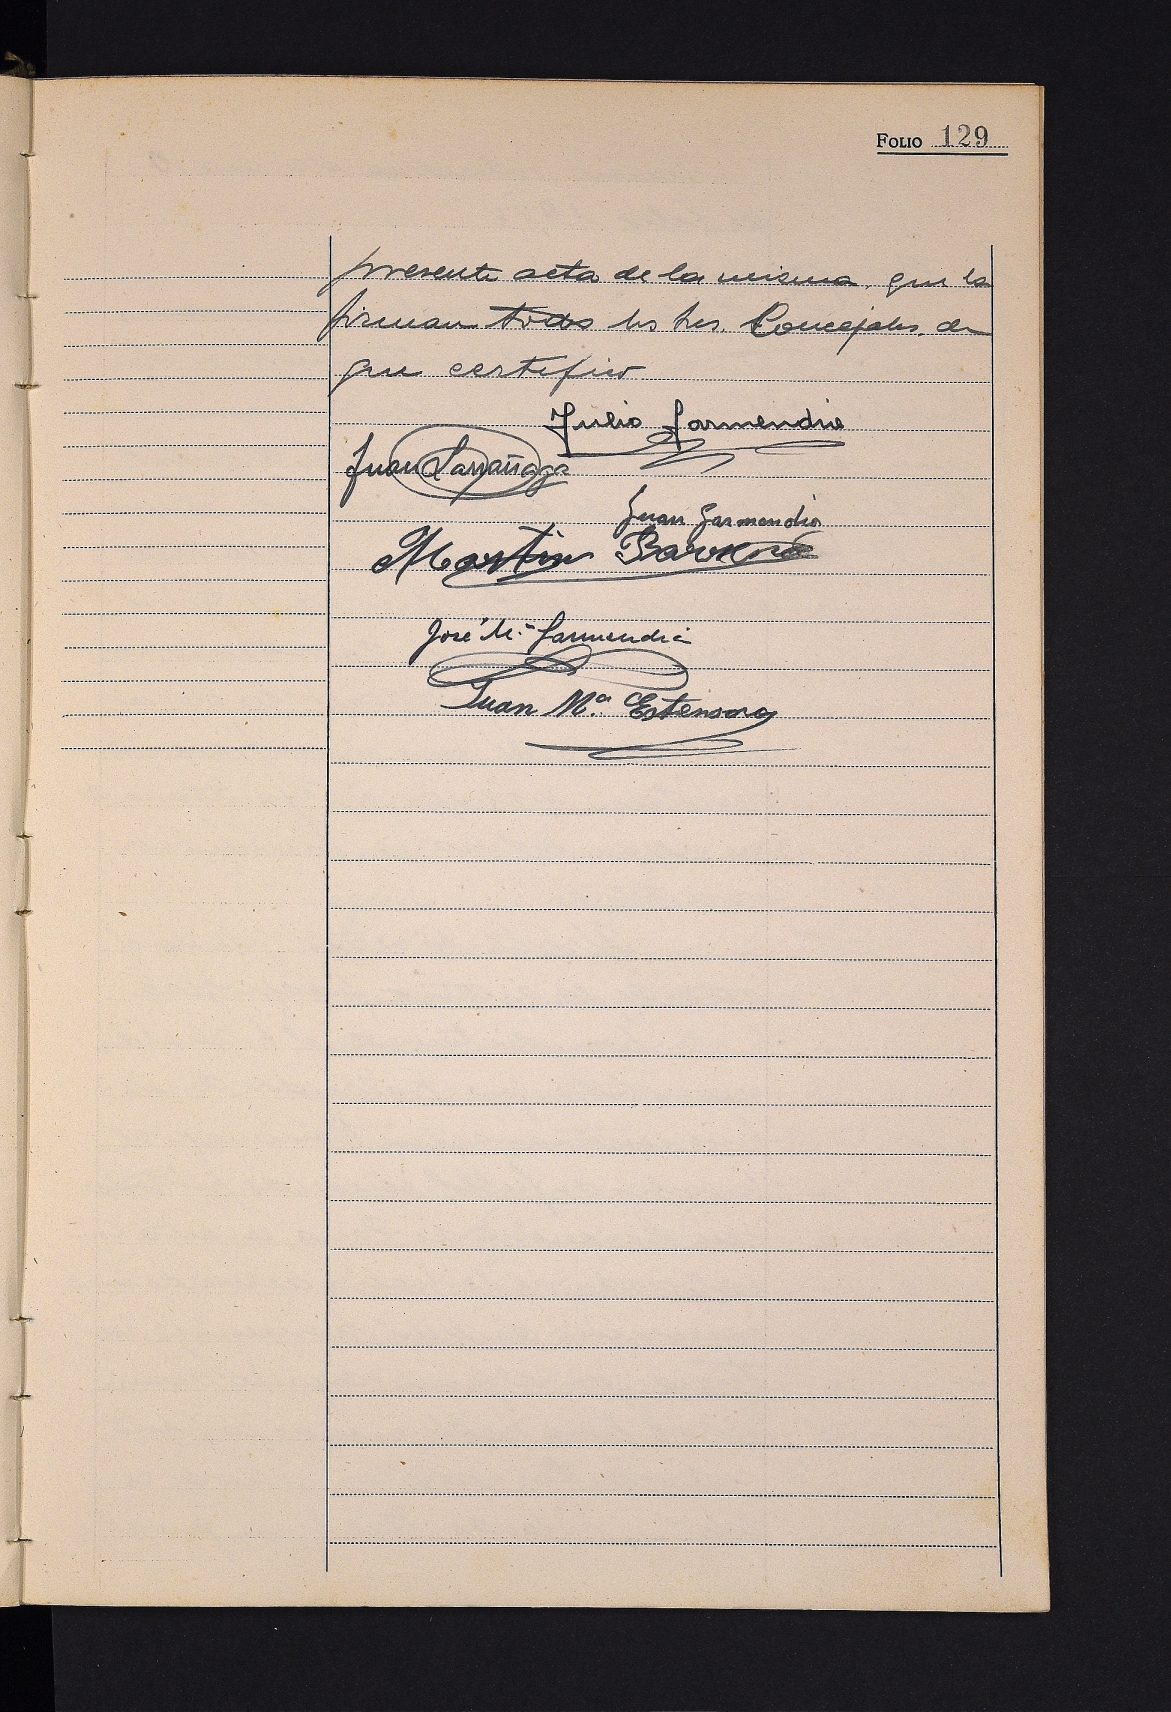 FOLIO 129
presente acta de la misma, que la
firman todos los Sres. Concejales, de
que certifico
Julio Garmendia
Juan Larrañaga
Juan Garmendia
Martin
José Mª Garmendia
Juan Mª Estensoro